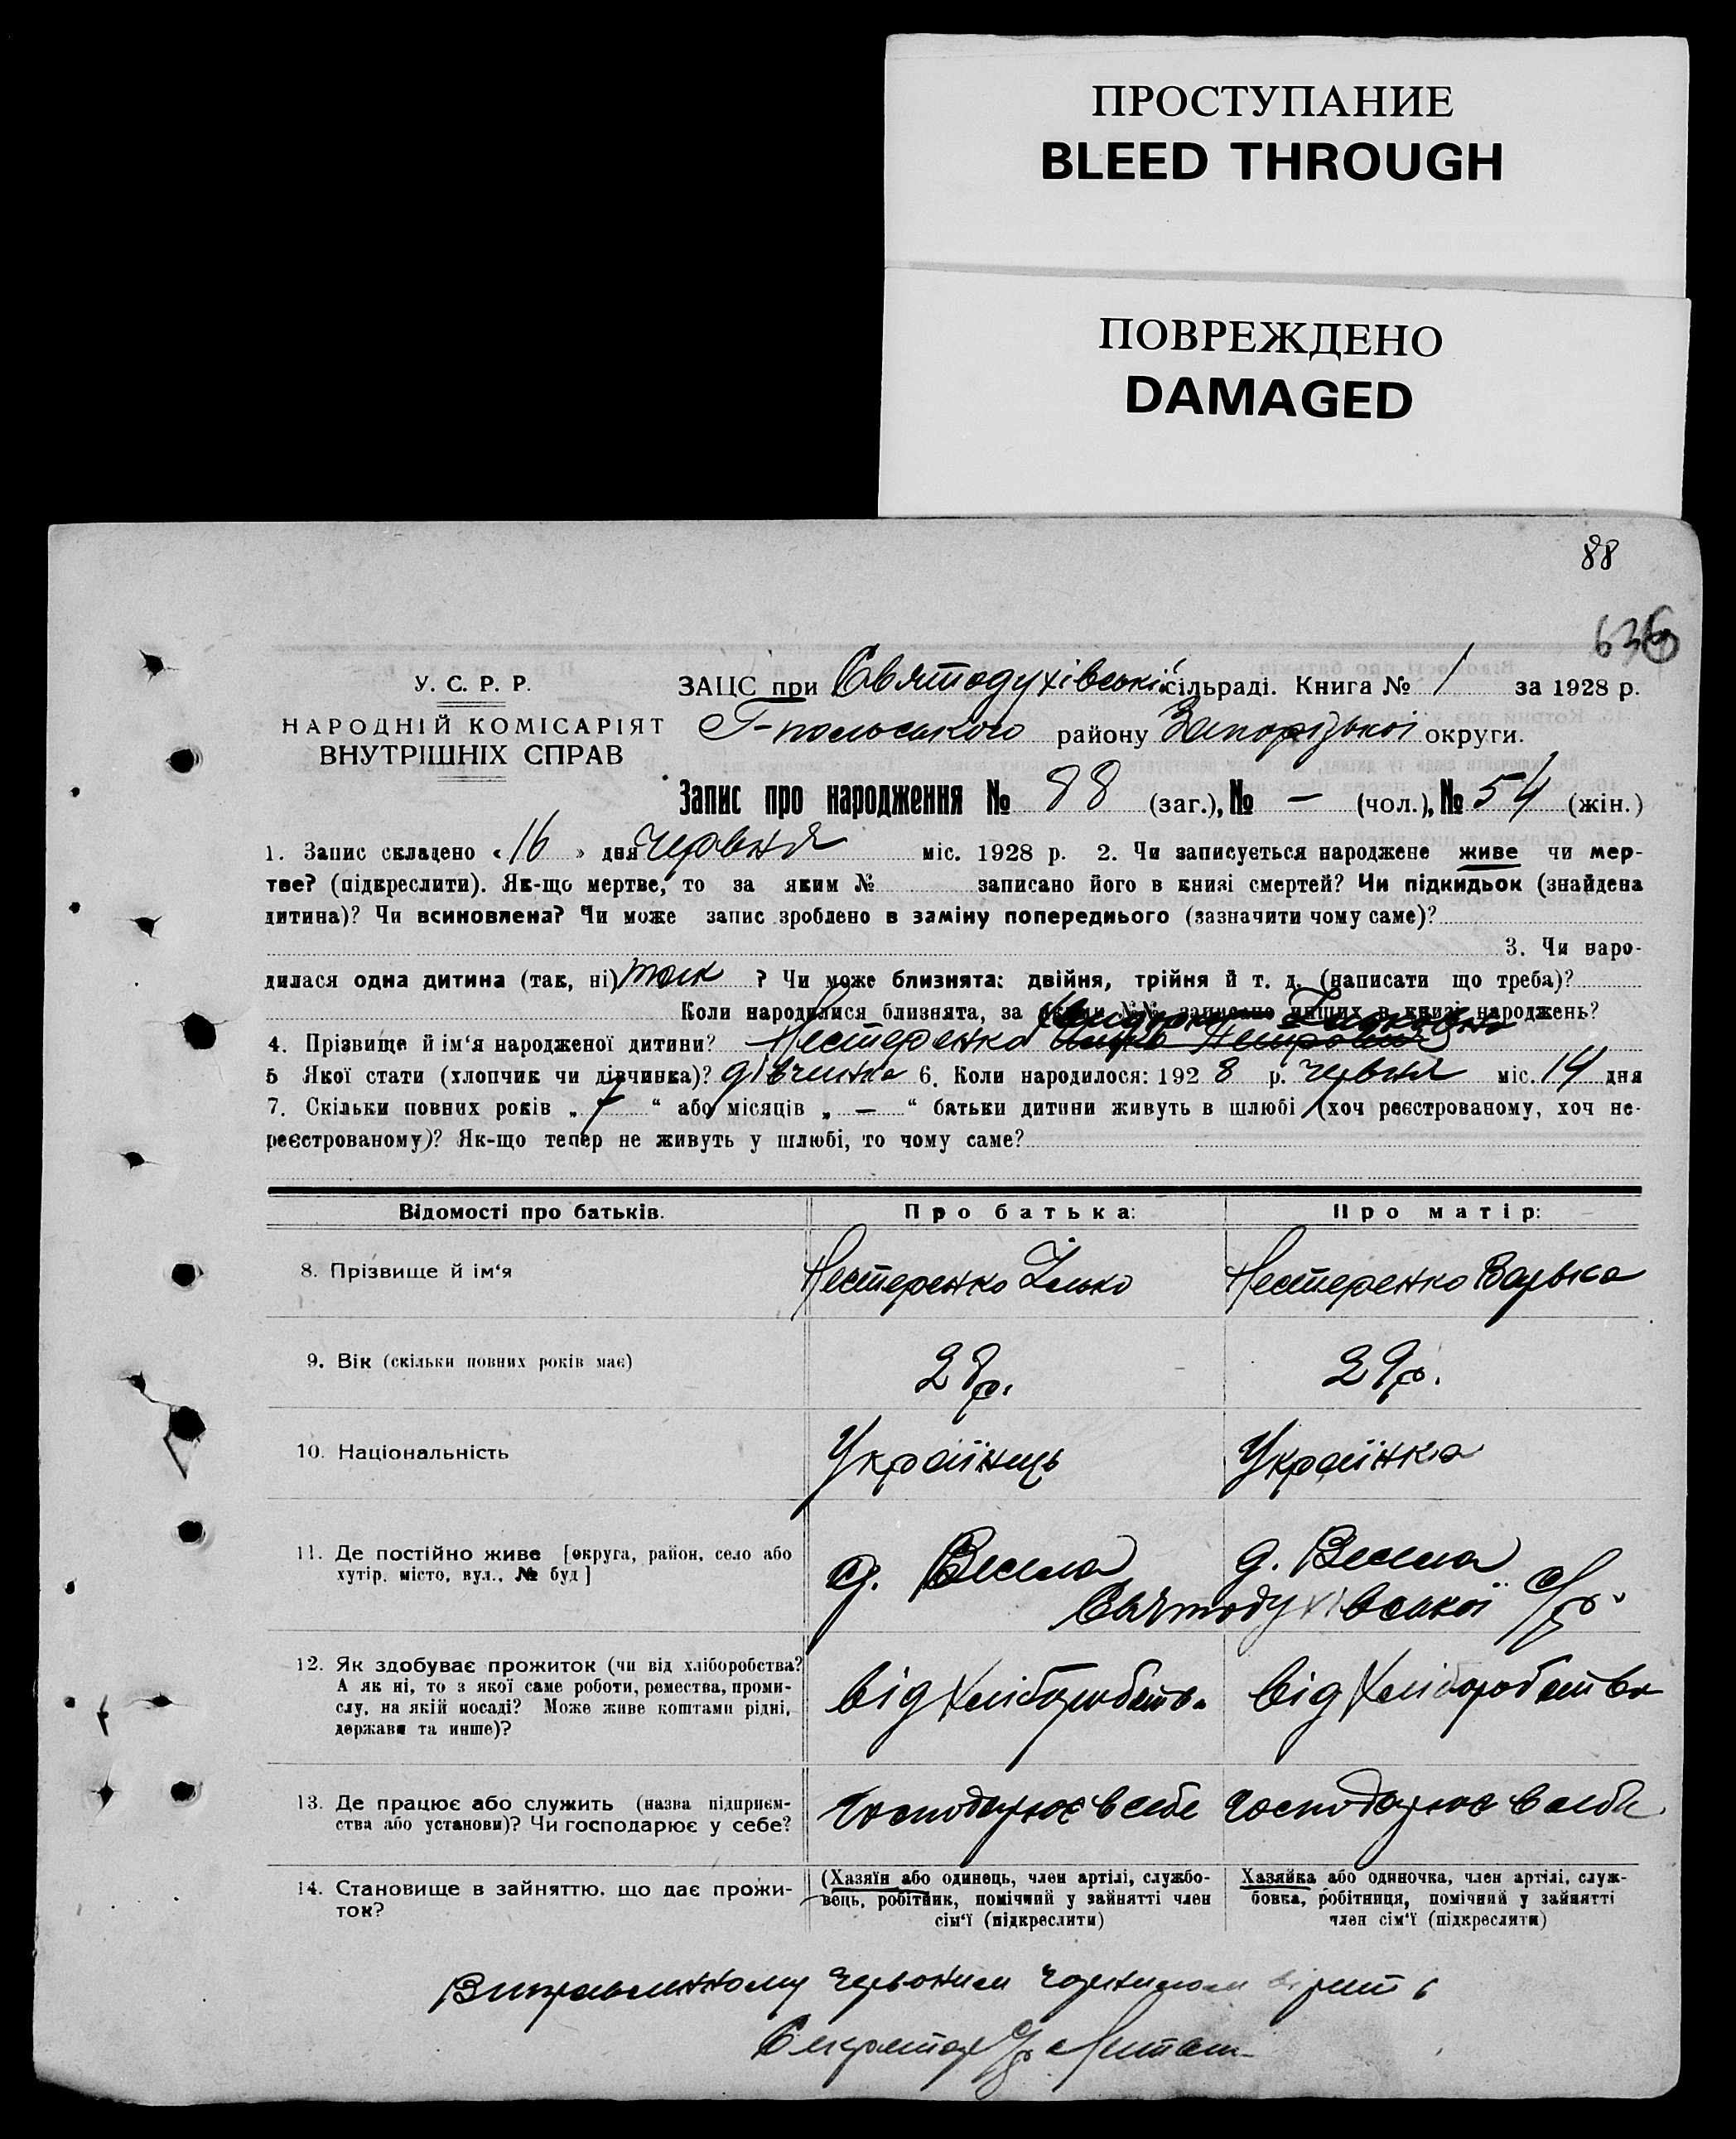 ПРОСТУПАНИЕ
BLEED THROUGH
ПОВРЕЖДЕНО
DAMAGED
88
636
У. С. Р. Р.
НАРОДНІЙ КОМІСАРІЯТ
ВНУТРІШНІХ СПРАВ
ЗАЦС при Святодухівській сільраді. Книга № 1 за 1928 р.
Г-польського району Запорізької округи.
Запис про народження № 88 (заг.), № — (чол.), № 54 (жін.)
1. Запис складено « 16 » дня червня міс. 1928 р. 2. Чи записується народжене живе чи мер-
тве? (підкреслити). Як-що мертве, то за яким № записано його в книзі смертей? Чи підкидьок (знайдена
дитина)? Чи всиновлена? Чи може запис зроблено в заміну попереднього (зазначити чому саме)?
3. Чи наро-
дилася одна дитина (так, ні) так ? Чи може близнята: двійня, трійня й т. д. (написати що треба)?
Коли народилися близнята, за якими №№ записано инших в книзі народжень?
4. Прізвище й ім'я народженої дитини? Нестеренко
5 Якої стати (хлопчик чи дівчинка)? дівчинка 6. Коли народилося: 192 8 р. червня міс. 14 дня
7. Скільки повних років „ 7 “ або місяців „ — “ батьки дитини живуть в шлюбі (хоч реєстрованому, хоч не-
реєстрованому)? Як-що тепер не живуть у шлюбі, то чому саме?
Відомості про батьків. Про батька: Про матір:
8. Прізвище й ім'я Нестеренко Ілько Нестеренко Варька
9. Вік (скільки повних років має) 28 р. 29 р.
10. Національність Українець Українка
11. Де постійно живе [округа, район, село або
хутір, місто, вул., № буд]
д. Весела д. Весела
Святодухівської с/р.
12. Як здобуває прожиток (чи від хліборобства?
А як ні, то з якої саме роботи, ремества, проми-
слу, на якій посаді? Може живе коштами рідні,
держави та инше)?
від хліборобств. від хліборобства
13. Де працює або служить (назва підприєм-
ства або установи)? Чи господарює у себе?
господарює в себе господарює в себе
14. Становище в зайняттю, що дає прожи-
ток?
(Хазяїн або одинець, член артілі, службо-
вець, робітник, помічний у зайнятті член
сім'ї (підкреслити)
Хазяйка або одиночка, член артілі, служ-
бовка, робітниця, помічний у зайнятті
член сім'ї (підкреслити)
Виправленному червоним чорнилом вірити
Секретар